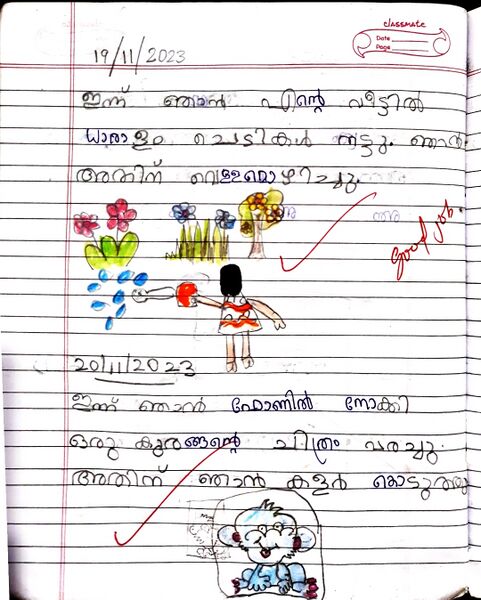 classmate
Date
Page
19/11/2023
ഇന്ന് ഞാൻ എന്റെ വീട്ടിൽ
ധാരാളം ചെടികൾ നട്ടു. ഞാൻ
അതിന് വെള്ളമൊഴിച്ചു.
Good job.
20/11/2023
ഇന്ന് ഞാൻ ഫോണിൽ നോക്കി
ഒരു കുരങ്ങന്റെ ചിത്രം വരച്ചു.
അതിന് ഞാൻ കളർ കൊടുത്തു